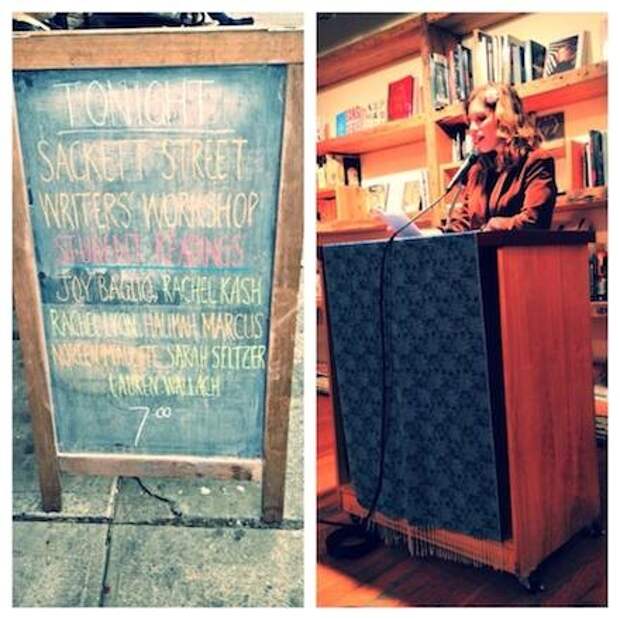 TONIGHT
SACKETT STREET
WRITERS' WORKSHOP
STUDENT READINGS
JOY BAGLIO, RACHEL KASH
RACHEL LYON, HALIMAH MARCUS
SARAH SELTZER
LAUREN WALLACH
7:00